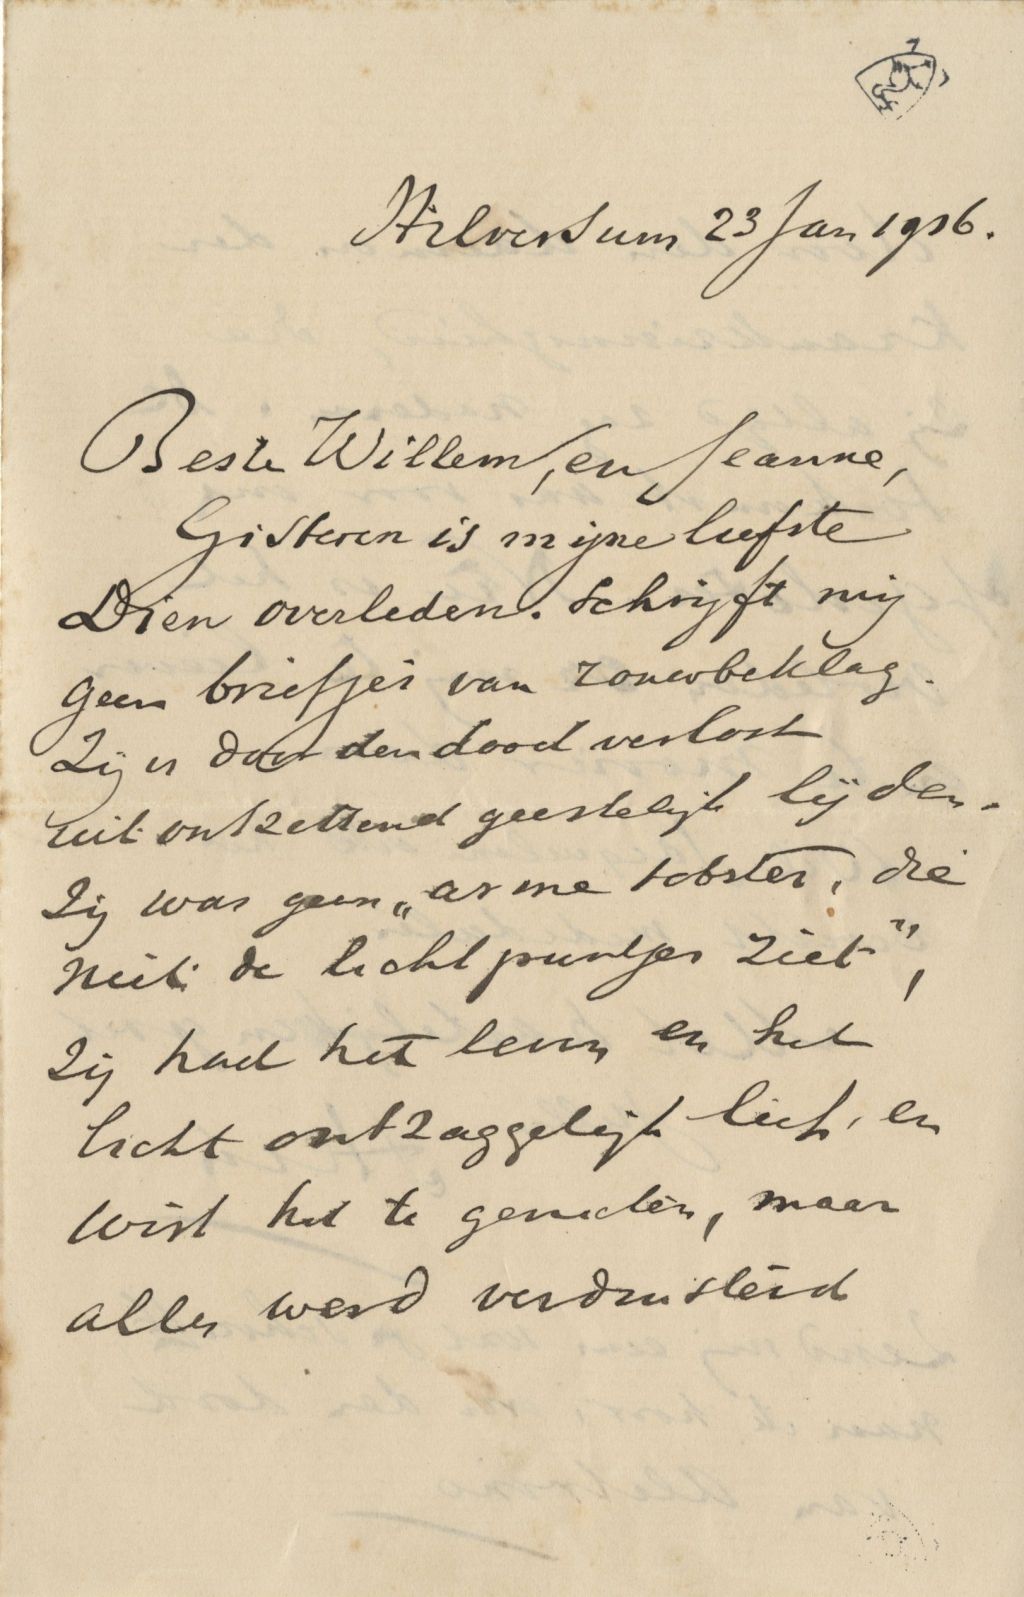 Hilversum 23 Jan 1916.
Beste Willem, en Jeanne,
Gisteren is mijne liefste
Dien overleden. Schrijft mij
geen briefjes van rouwbeklag.
Zij is door den dood verlost
uit ontzettend geestelijk lijden.
Zij was geen „arme tobster, die
niet de lichtpuntjes ziet",
Zij had het leven en het
licht ontzaggelijk lief, en
wist het te genieten, maar
alles werd verduisterd